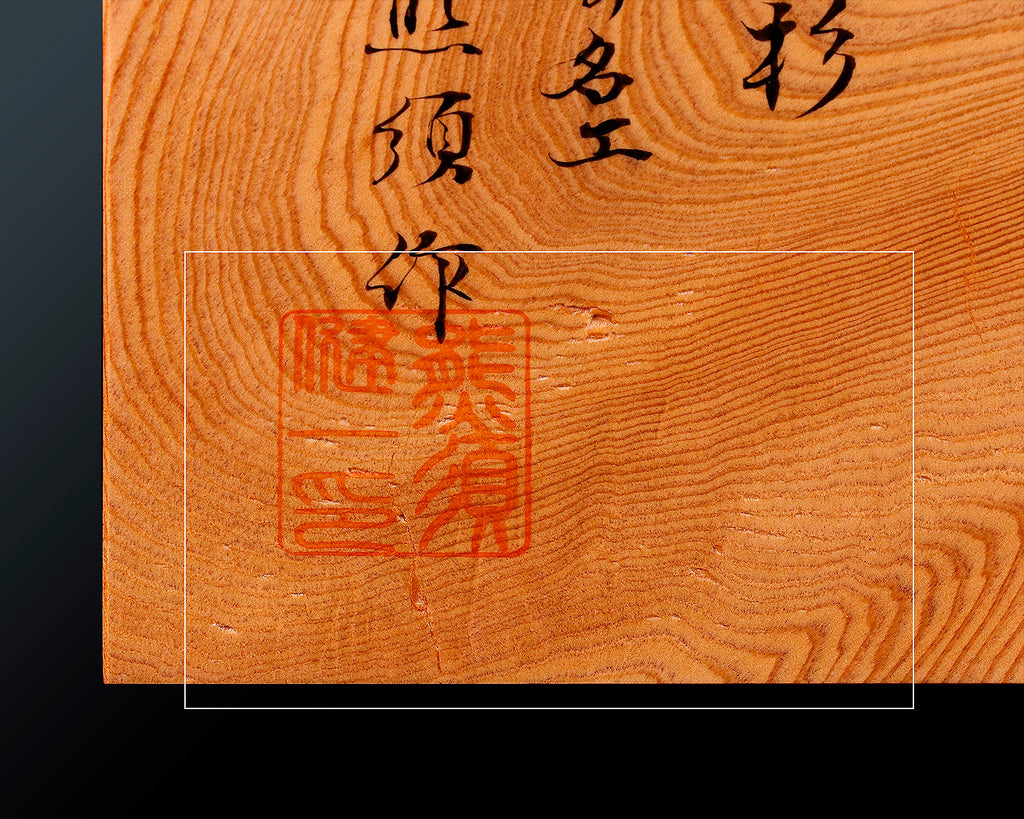 杉
名工
熊須作
熊須
健一印